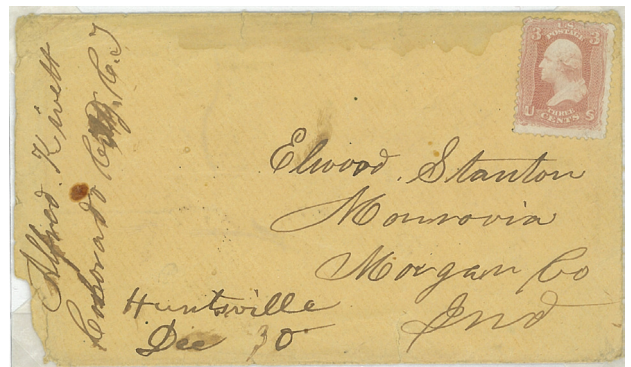 Alfred. Kivett
Colorado City. C. T
U.S. POSTAGE
3 3
THREE CENTS
U S
Elwood. Stanton
Monrovia
Morgan Co
Ind
Huntsville
Dec 30